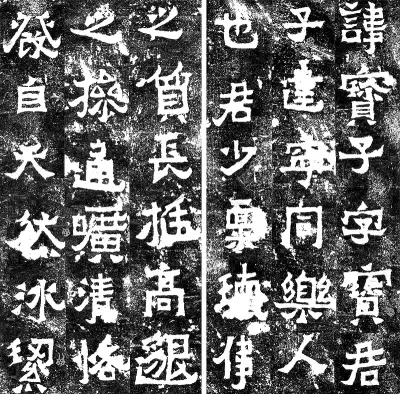 諱寶子字寶君
子建寧同樂人
也君少稟瓌偉
之質長挺高邈
之操通曠清恪
發自天然冰潔